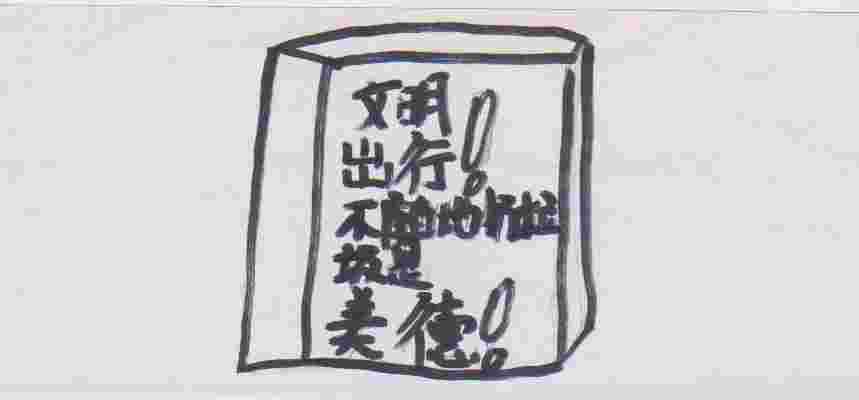 文明
出行!
不地扔垃
圾是
美德!